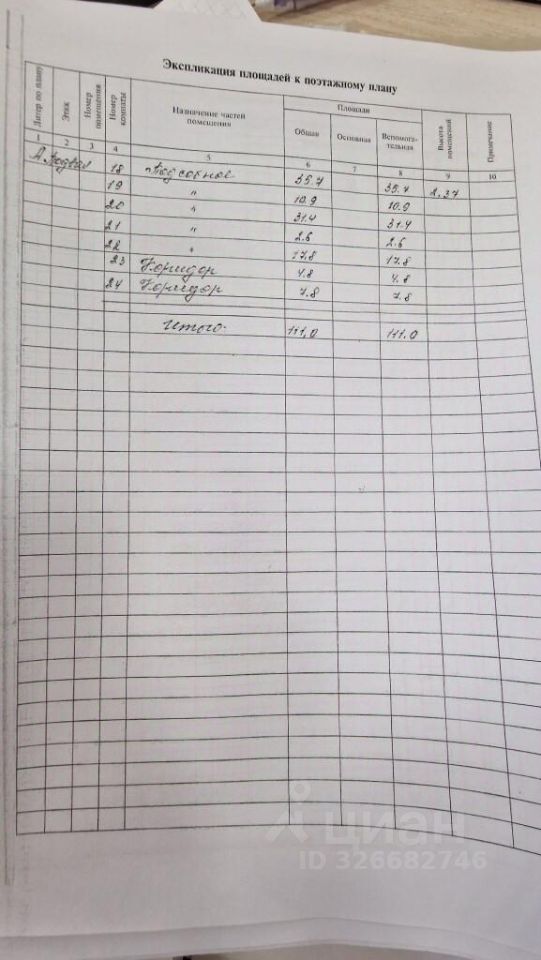 Экспликация площадей к поэтажному плану
Литер по плану Этаж Номер помещения Номер комнаты Назначение частей помещения Площади Общая Основная Вспомога-тельная Высота помещений Примечание
1 2 3 4 5 6 7 8 9 10
А Подвал 18 Подсобное 35.7 35.7 2,27
19 " 10.9 10.9
20 " 31.4 31.4
21 " 2.6 2.6
22 " 17.8 17.8
23 Коридор 4.8 4.8
24 Коридор 7.8 7.8
Итого: 111,0 111.0
циан
ID 326682746